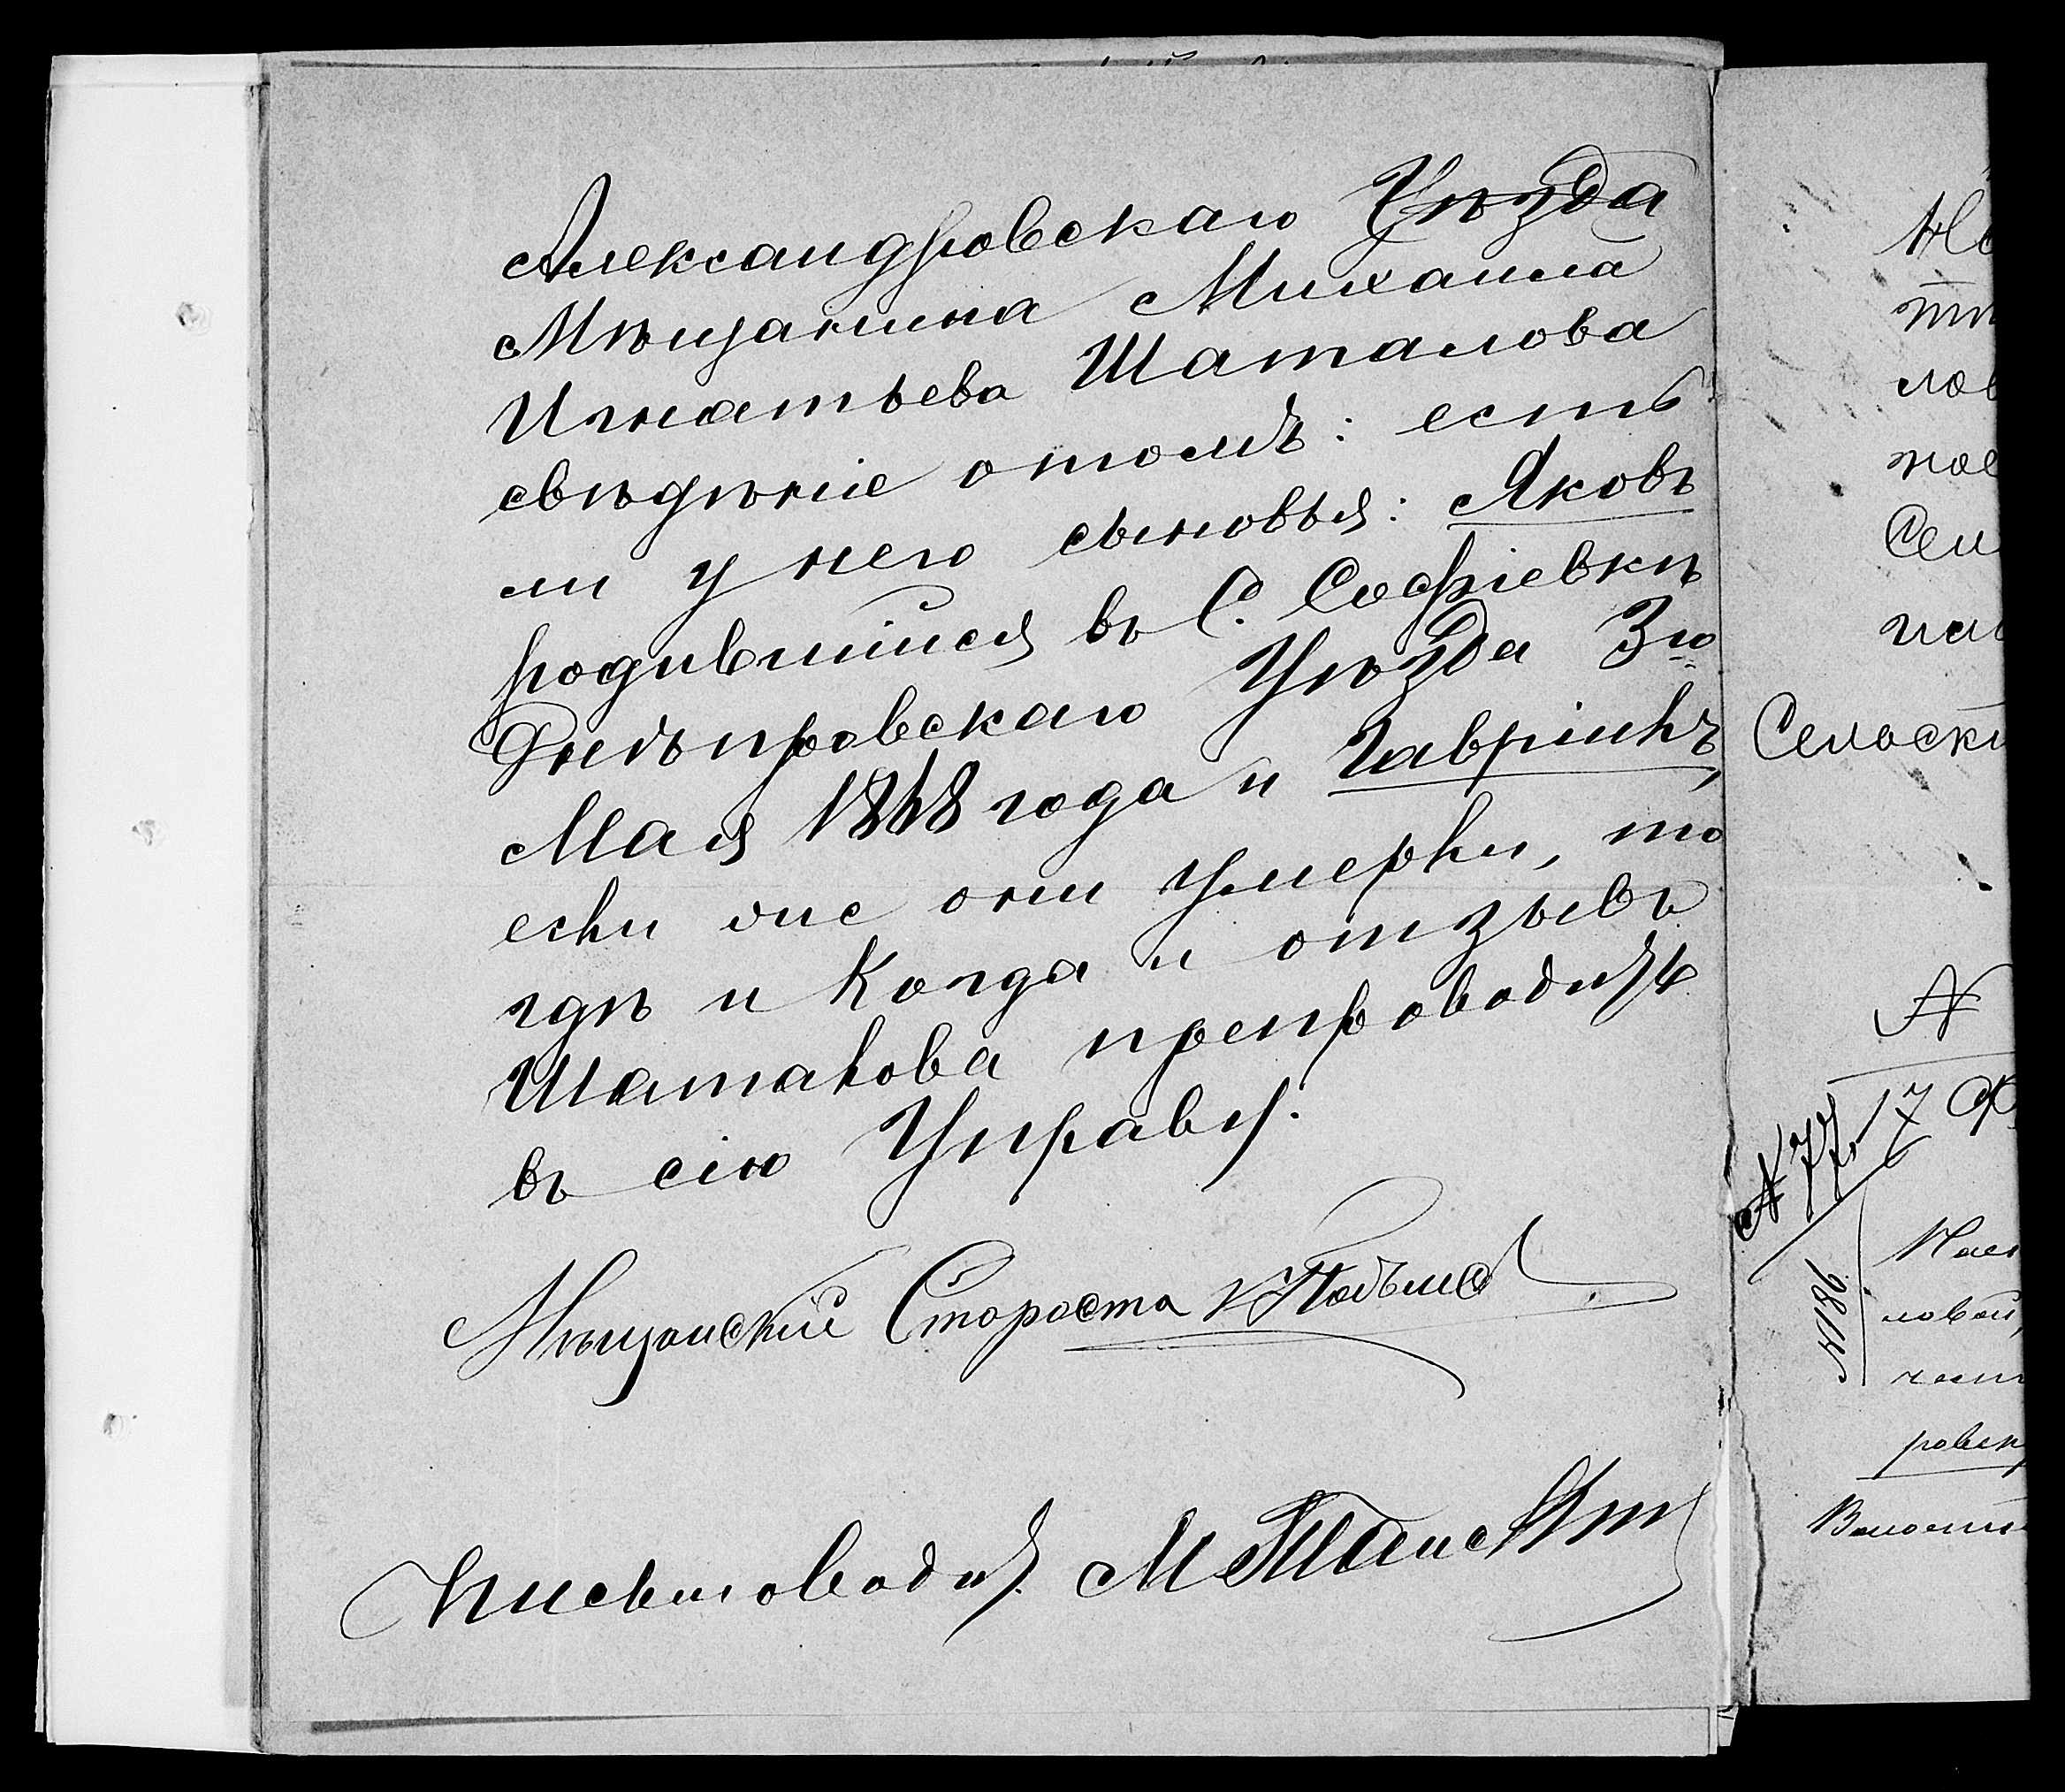 Александровскаго Уѣзда
Мѣщанина Михаила
Игнатьева Шаталова
свѣдѣніе отомъ: есть
ли у него сыновья: Яковъ
родившійся въ С. Софіевкѣ
Днѣпровскаго Уѣзда 3го
Мая 1868 года и Гавріилъ,
если же они умерли, то
гдѣ и Когда и отзывъ
Шаталова препроводить
въ сію Управу.
Мѣщанскій Староста
Письмоводит.
Но
лов
Сел
Сельскі
№
№ 77. 17 Ф
ловой,
ровск
Волостн